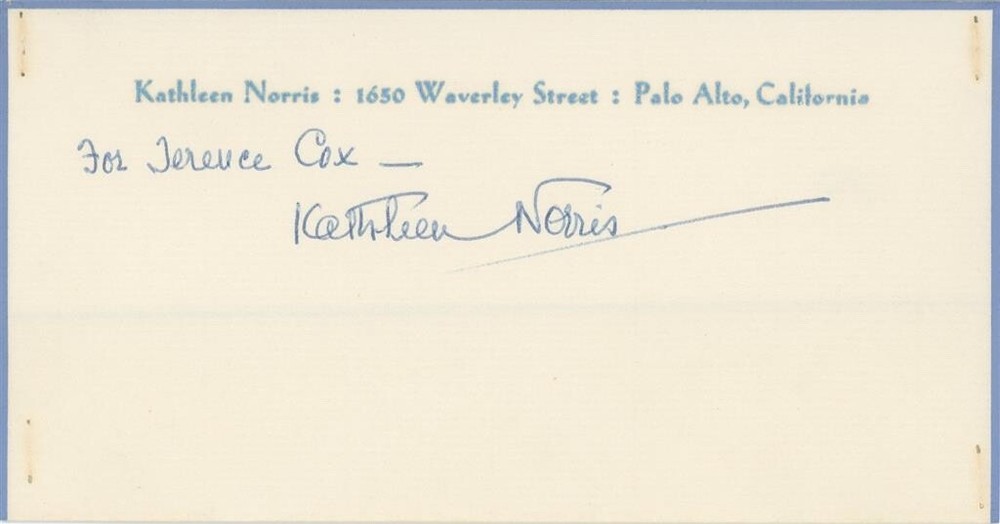 Kathleen Norris : 1650 Waverley Street : Palo Alto, California
For Terence Cox —
Kathleen Norris